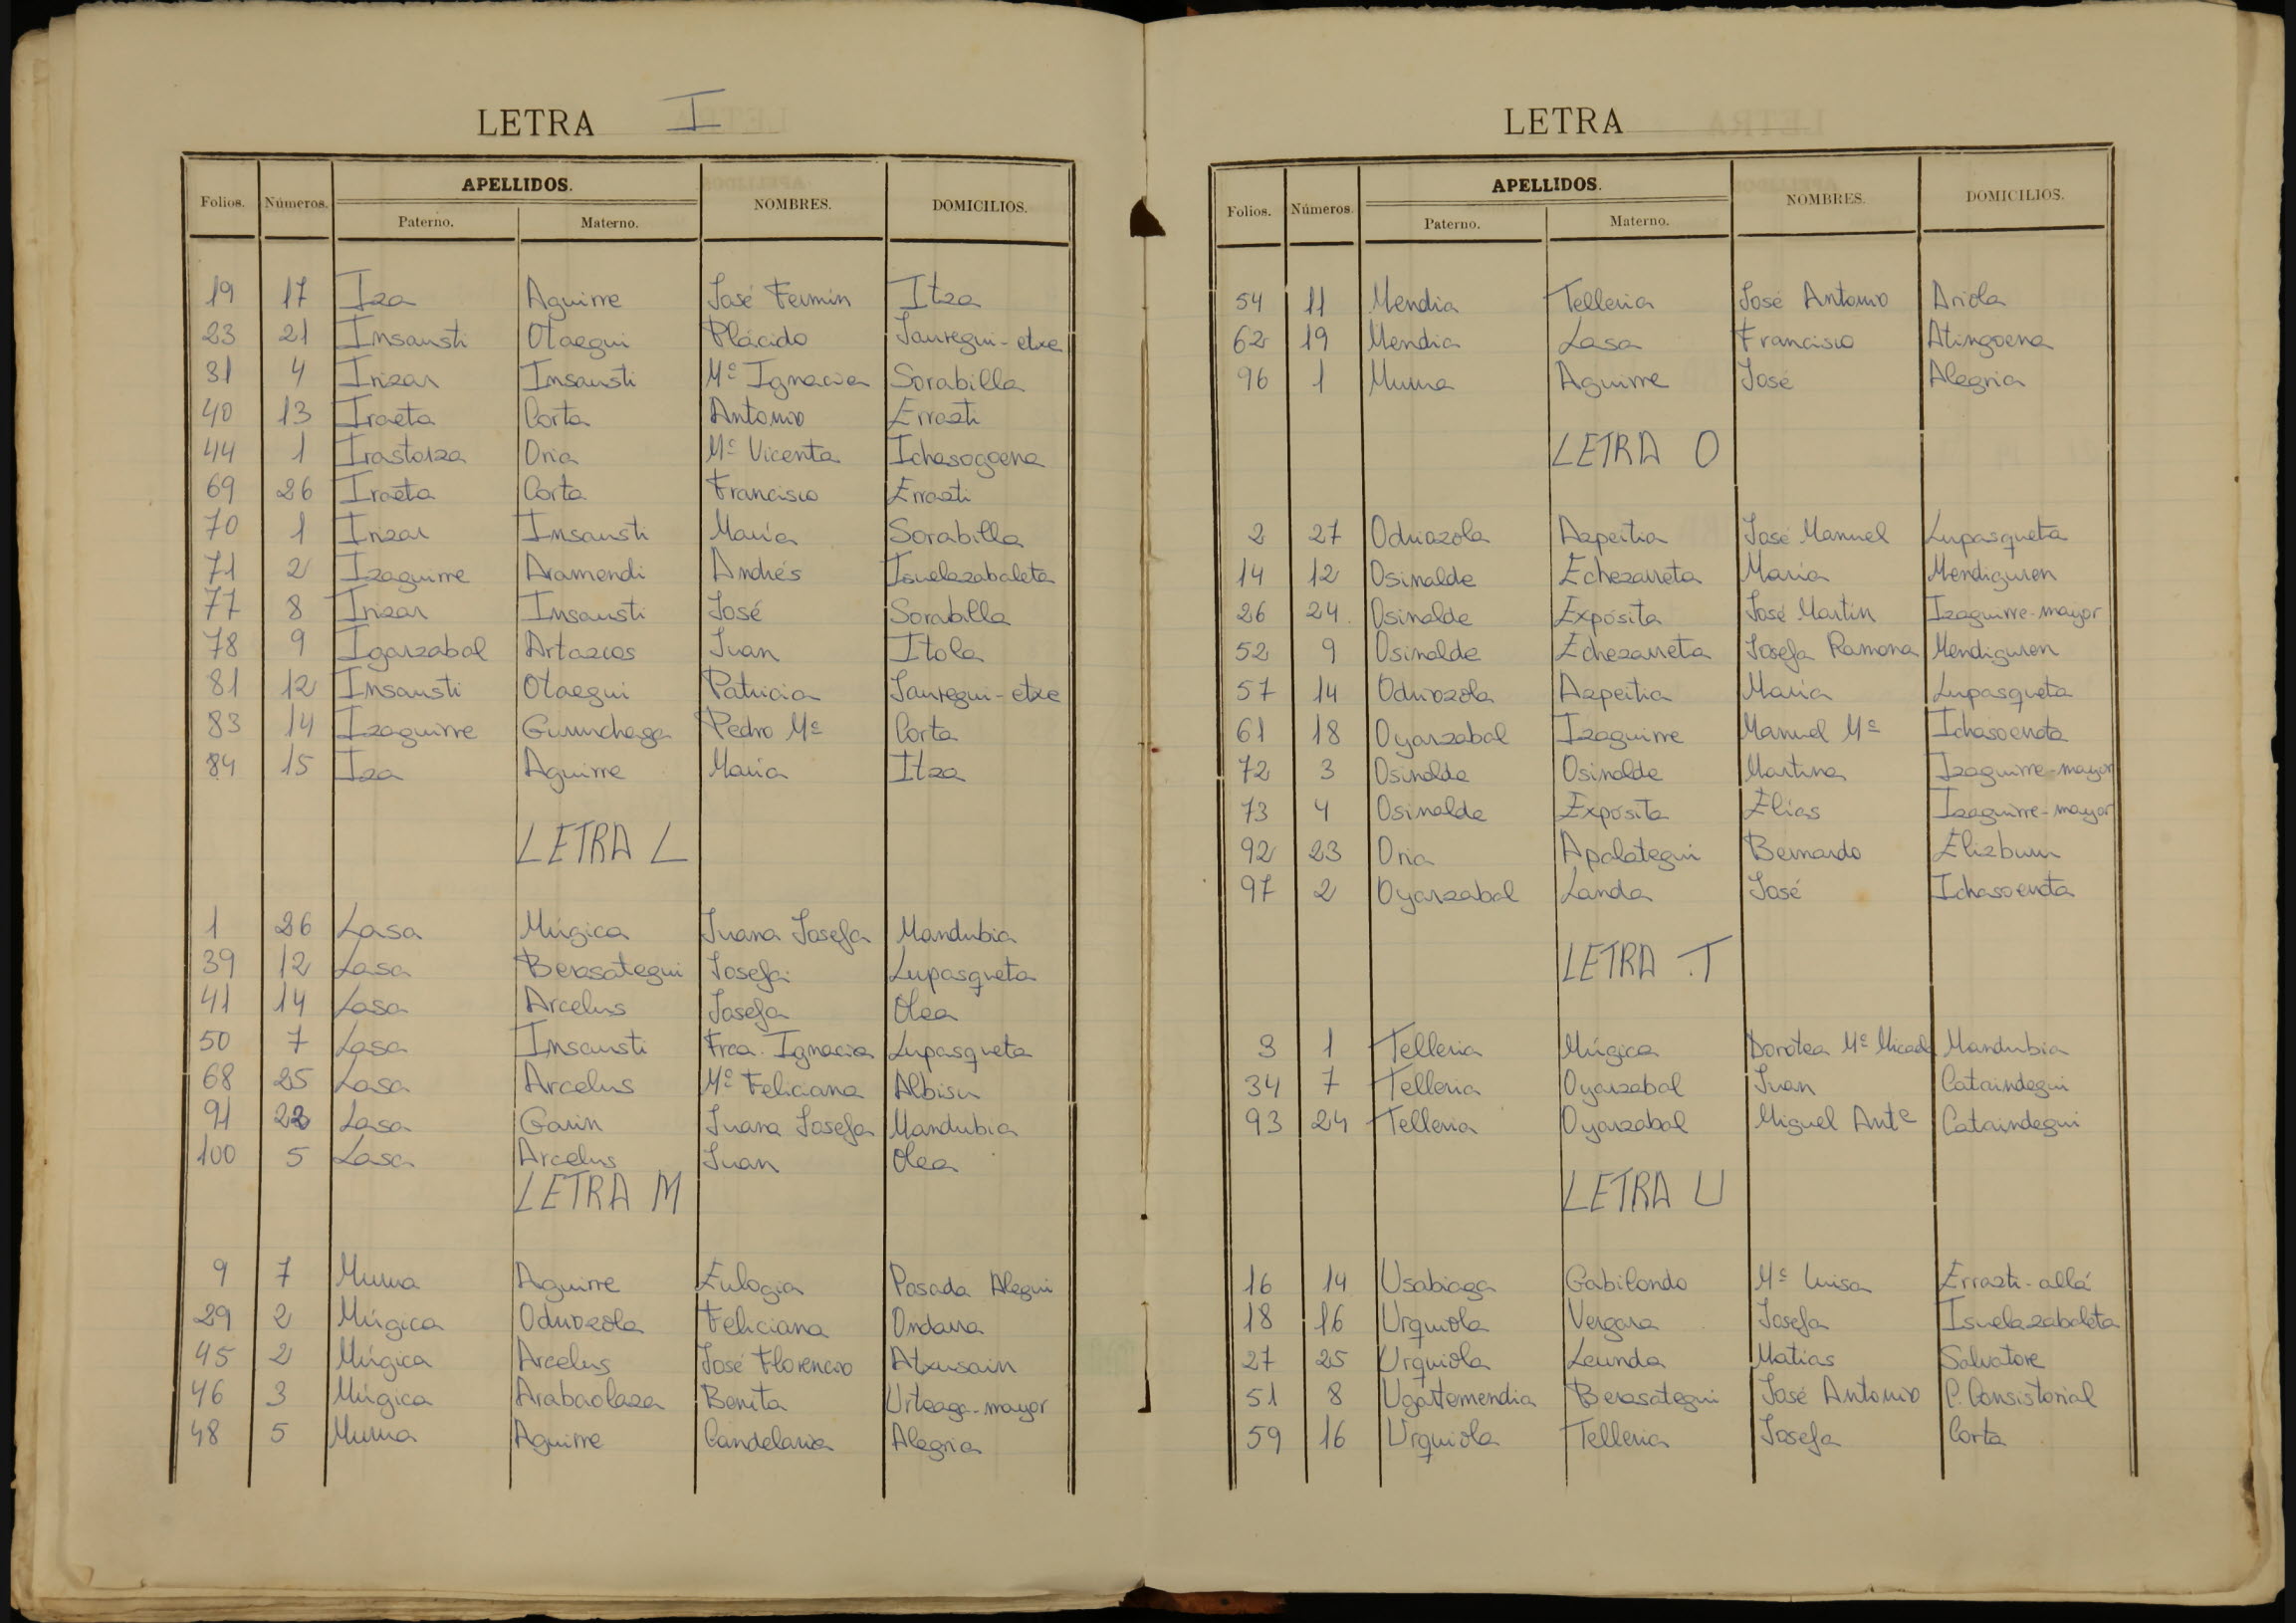 LETRA I
APELLIDOS.
Folios. Números. Paterno. Materno. NOMBRES. DOMICILIOS.
19 17 Iza Aguirre José Fermín Itza
23 21 Insausti Otaegui Plácido Jauregui-etxe
31 4 Irizar Insausti Mª Ignacia Sorabilla
40 13 Iraeta Corta Antonio Errazti
44 1 Irastorza Oria Mª Vicenta Ichasogoena
69 26 Iraeta Corta Francisco Errazti
70 1 Irizar Insausti María Sorabilla
71 2 Izaguirre Aramendi Andrés Isuelazabaleta
77 8 Irizar Insausti José Sorabilla
78 9 Igarzabal Artazcos Juan Itola
81 12 Insausti Otaegui Patricia Jauregui-etxe
83 14 Izaguirre Guruchaga Pedro Mª Corta
84 15 Iza Aguirre María Itza
LETRA L
1 26 Lasa Múgica Juana Josefa Mandubia
39 12 Lasa Berasategui Josefa Lupasqueta
41 14 Lasa Arcelus Josefa Olea
50 7 Lasa Insausti Frca. Ignacia Lupasqueta
68 25 Lasa Arcelus Mª Feliciana Albisu
91 22 Lasa Garin Juana Josefa Mandubia
100 5 Lasa Arcelus Juan Olea
LETRA M
9 7 Murua Aguirre Eulogia Posada Alegui
29 2 Múgica Odriozola Feliciana Ondarra
45 2 Múgica Arcelus José Florencio Atxusain
46 3 Múgica Arabaolaza Benita Urteaga-mayor
48 5 Murua Aguirre Candelaria Alegria
LETRA
APELLIDOS.
Folios. Números. Paterno. Materno. NOMBRES. DOMICILIOS.
54 11 Mendia Telleria José Antonio Ariola
62 19 Mendia Lasa Francisco Atingoena
96 1 Murua Aguirre José Alegria
LETRA O
2 27 Odriozola Azpeitia José Manuel Lupasqueta
14 12 Osinalde Echezarreta María Mendiguren
26 24. Osinalde Expósita José Martín Izaguirre-mayor
52 9 Osinalde Echezarreta Josefa Ramona Mendiguren
57 14 Odriozola Azpeitia María Lupasqueta
61 18 Oyarzabal Izaguirre Manuel Mª Ichasoerrota
72 3 Osinalde Osinalde Martina Izaguirre-mayor
73 4 Osinalde Expósita Elías Izaguirre-mayor
92 23 Oria Apalategui Bernardo Elizburu
97 2 Oyarzabal Landa José Ichasoerrota
LETRA T
3 1 Telleria Múgica Dorotea Mª Micaela Mandubia
34 7 Telleria Oyarzabal Juan Cataindegui
93 24 Telleria Oyarzabal Miguel Antº Cataindegui
LETRA U
16 14 Usabiaga Gabilondo Mª Luisa Errazti-allá
18 16 Urquiola Vergara Josefa Isuelazabaleta
27 25 Urquiola Leunda Matias Salvatore
51 8 Ugartemendia Berasategui José Antonio C. Consistorial
59 16 Urquiola Telleria Josefa Corta